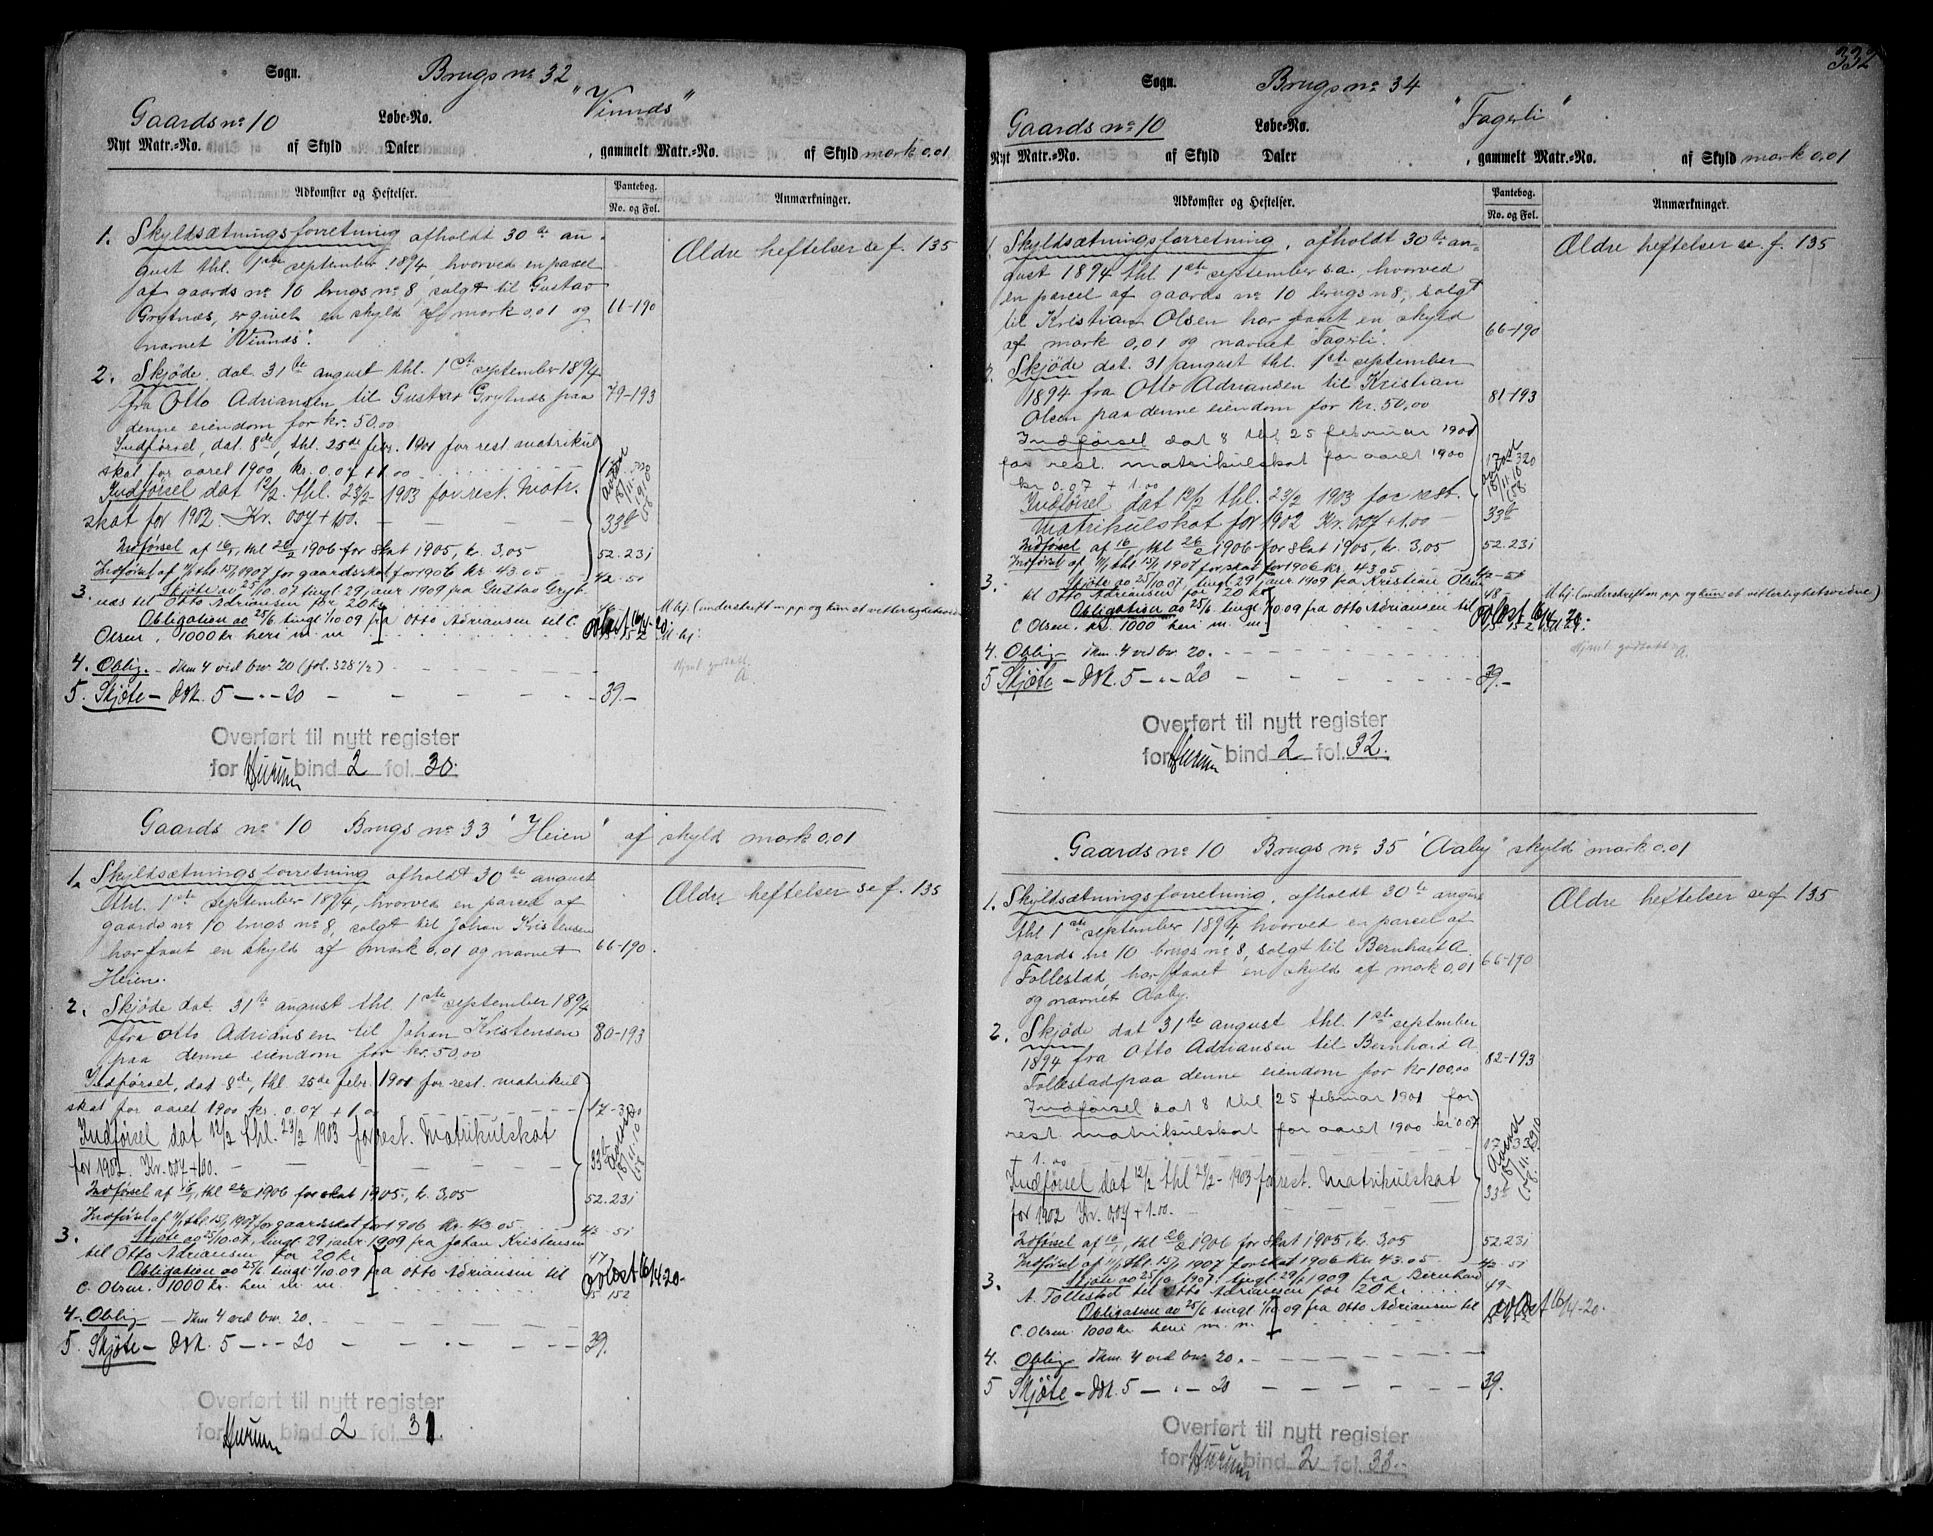 Sogn. Brugs no 32
Gaards no 10 Løbe-No. "Vinnæs"
Nyt Matr.-No. af Skyld Daler , gammelt Matr.-No. af Skyld mark 0,01
Adkomster og Heftelser. Pantebog. No. og Fol. Anmærkninger.
1. Skyldsætningsforretning afholdt 30te au-
gust thl. 1ste september 1894, hvorved en parcel
af gaards no 10 brugs no 8, solgt til Gustav
Grytnæs, er givet en skyld af mark 0,01 og 66-190
navnet "Vinnæs".
Ældre heftelser se f. 135
2. Skjøde dat. 31te august thl. 1ste september 1894
fra Otto Adriansen til Gustav Grytnæs paa 79-193
denne eiendom for kr. 50,00
Indførsel, dat. 8de, thl. 25de febr. 1901 for rest. matrikul
skat for aaret 1900 kr. 0.07 + 1.00
Indførsel dat 12/2 thl. 23/2 1903 for rest. Matr.
skat for 1902. Kr. 0.07 + 1.00. 33b
Indførsel af 16/1, thl 26/2 1906 for skat 1905, kr. 3,05 52.231
Indførsel af 11/1 thl 15/1 1907 for gaardsskat for 1906 kr. 43.05 42-51
3. Skjøte av 25/10.07 tingl. 29 jaur 1909 fra Gustav Gryt-
næs til Otto Adriansen for 20 kr
Obligation av 25/6 tingl 1/10 09 fra Otto Adriansen til C. avlæst 16/4-20
Olsen, 1000 kr heri m. m 15 152
M hj (underskrift m.p.p og kun et vitterlighetsvidne)
M hj:
4. Oblig. - dkm 4 ved bnr 20 (fol. 328 1/2)
5. Skjøte - dok. 5 - " - 20 - 39.-
Overført til nytt register
for Hurum bind 2 fol. 30.
Gaards no 10 Brugs no 33 "Heien" af skyld mark 0,01
1. Skyldsætningsforretning afholdt 30te august
thl. 1ste september 1894, hvorved en parcel af
gaards no 10 brugs no 8, solgt til Johan Kristensen
har faaet en skyld af mark 0,01 og navnet 66-190.
Heien.
Ældre heftelser se f. 135
2. Skjøde dat. 31te august thl. 1ste september 1894
fra Otto Adriansen til Johan Kristensen 80-193
paa denne eiendom for kr. 50,00
Indførsel, dat. 8de, thl. 25de febr. 1901 for rest. matrikul
skat for aaret 1900 kr. 0.07 + 1.00 17-320
Indførsel dat 12/2 thl. 23/2 1903 for rest. Matrikulskat
for 1902. Kr. 0.07 + 1.00. 33b
Indførsel af 16/1, thl 26/2 1906 for skat 1905, kr. 3,05 52.231
Indførsel af 11/1 thl. 15/1 1907 for gaardsskat for 1906 kr. 43.05 42-51
3. Skjøte av 25/10.07, tingl. 29 jaur 1909 fra Johan Kristensen
til Otto Adriansen for 20 kr 47
Obligation av 25/6 tingl 1/10 09 fra Otto Adriansen til avlæst 16/4-20.
C. Olsen. 1000 kr. heri m. m. 15 152
4. Oblig - dkm 4 ved bnr. 20.
5. Skjøte - dok. 5 - " - 20 39.
Overført til nytt register
for Hurum bind 2 fol. 31.
332
Sogn. Brugs no 34
Gaards no 10 Løbe-No. "Fagerli"
Nyt Matr.-No. af Skyld Daler , gammelt Matr.-No. af Skyld mark 0,01
Adkomster og Heftelser. Pantebog. No. og Fol. Anmærkninger.
1. Skyldsætningsforretning, afholdt 30te au-
gust 1894 thl 1ste september s.a. hvorved
en parcel af gaards no 10 brugs n 8, solgt
til Kristian Olsen har faaet en skyld 66-190
af mark 0,01 og navnet Fagerli.
Ældre heftelser se. f. 135
2. Skjøde dat. 31 august thl. 1ste september
1894 fra Otto Adriansen til Kristian 81-193
Olsen paa denne eiendom for kr. 50,00
Indførsel dat 8 thl. 25 februar 1901
for rest. matrikulskat for aaret 1900 17-320
kr 0.07 + 1.00
Indførsel dat 12/2 thl. 23/2 1903 for rest.
Matrikulskat for 1902 Kr. 0.07 + 1.00 33b
Indførsel af 16/1, thl 26/2 1906 for skat 1905, kr. 3,05 52.231
Indførsel af 11/1 thl 15/1 1907 for skat for 1906 kr. 43.05 42-51
3. Skjøte av 25/10.07, tingl 29 jaur 1909 fra Kristian Olsen
til Otto Adriansen for 20 kr 48-
Obligation av 25/6 tingl 1/10 09 fra Otto Adriansen til avlæst 16/4-20
C Olsen. kr. 1000 heri m. m 15 152
M hj (underskrift m.p.p og kun et vitterlighetsvidne)
M hj:
4. Oblig dkm. 4 ved bnr 20.
5 Skjøte - dok. 5 - " - 20 39.-
Overført til nytt register
for Hurum bind 2 fol. 32.
Gaards no 10 Brugs no 35 "Aaby" skyld mark 0,01
1. Skyldsætningsforretning, afholdt 30te august
thl 1ste september 1894, hvorved en parcel af
gaards no 10 brugs no 8, solgt til Bernhart A.
Follestad, har faaet en skyld af mark 0,01 66-190
og navnet Aaby.
Ældre heftelser se f. 135
2. Skjøde dat 31te august thl. 1ste september
1894 fra Otto Adriansen til Bernhard A 82-193
Follestad paa denne eiendom for kr 100,00
Indførsel dat 8 thl 25 februar 1901 for
rest. matrikulskat for aaret 1900 kr 0.07
+ 1.00
Indførsel dat 12/2 thl 23/2 - 1903 for rest. Matrikulskat 33b
for 1902 Kr. 0.07 + 1.00.
Indførsel af 16/1, thl 26/2 1906 for skat 1905, kr. 3,05 52.231
Indførsel af 11/1 thl. 15/1 1907 for skat 1906 kr 43.05 42-51
3. Skjøte av 25/10 1907. tingl. 29/1 1909 fra Bernhard
A. Follestad til Otto Adriansen for 20 kr 49-
Obligation av 25/6 tingl 1/10 09 fra Otto Adriansen til avlæst 16/4-20.
C. Olsen 1000 kr. heri m. m. 15 152
4. Oblig dkm. 4 ved bnr 20.
5 Skjøte - dok. 5 - " - 20 39.
Overført til nytt register
for Hurum bind 2 fol. 33.